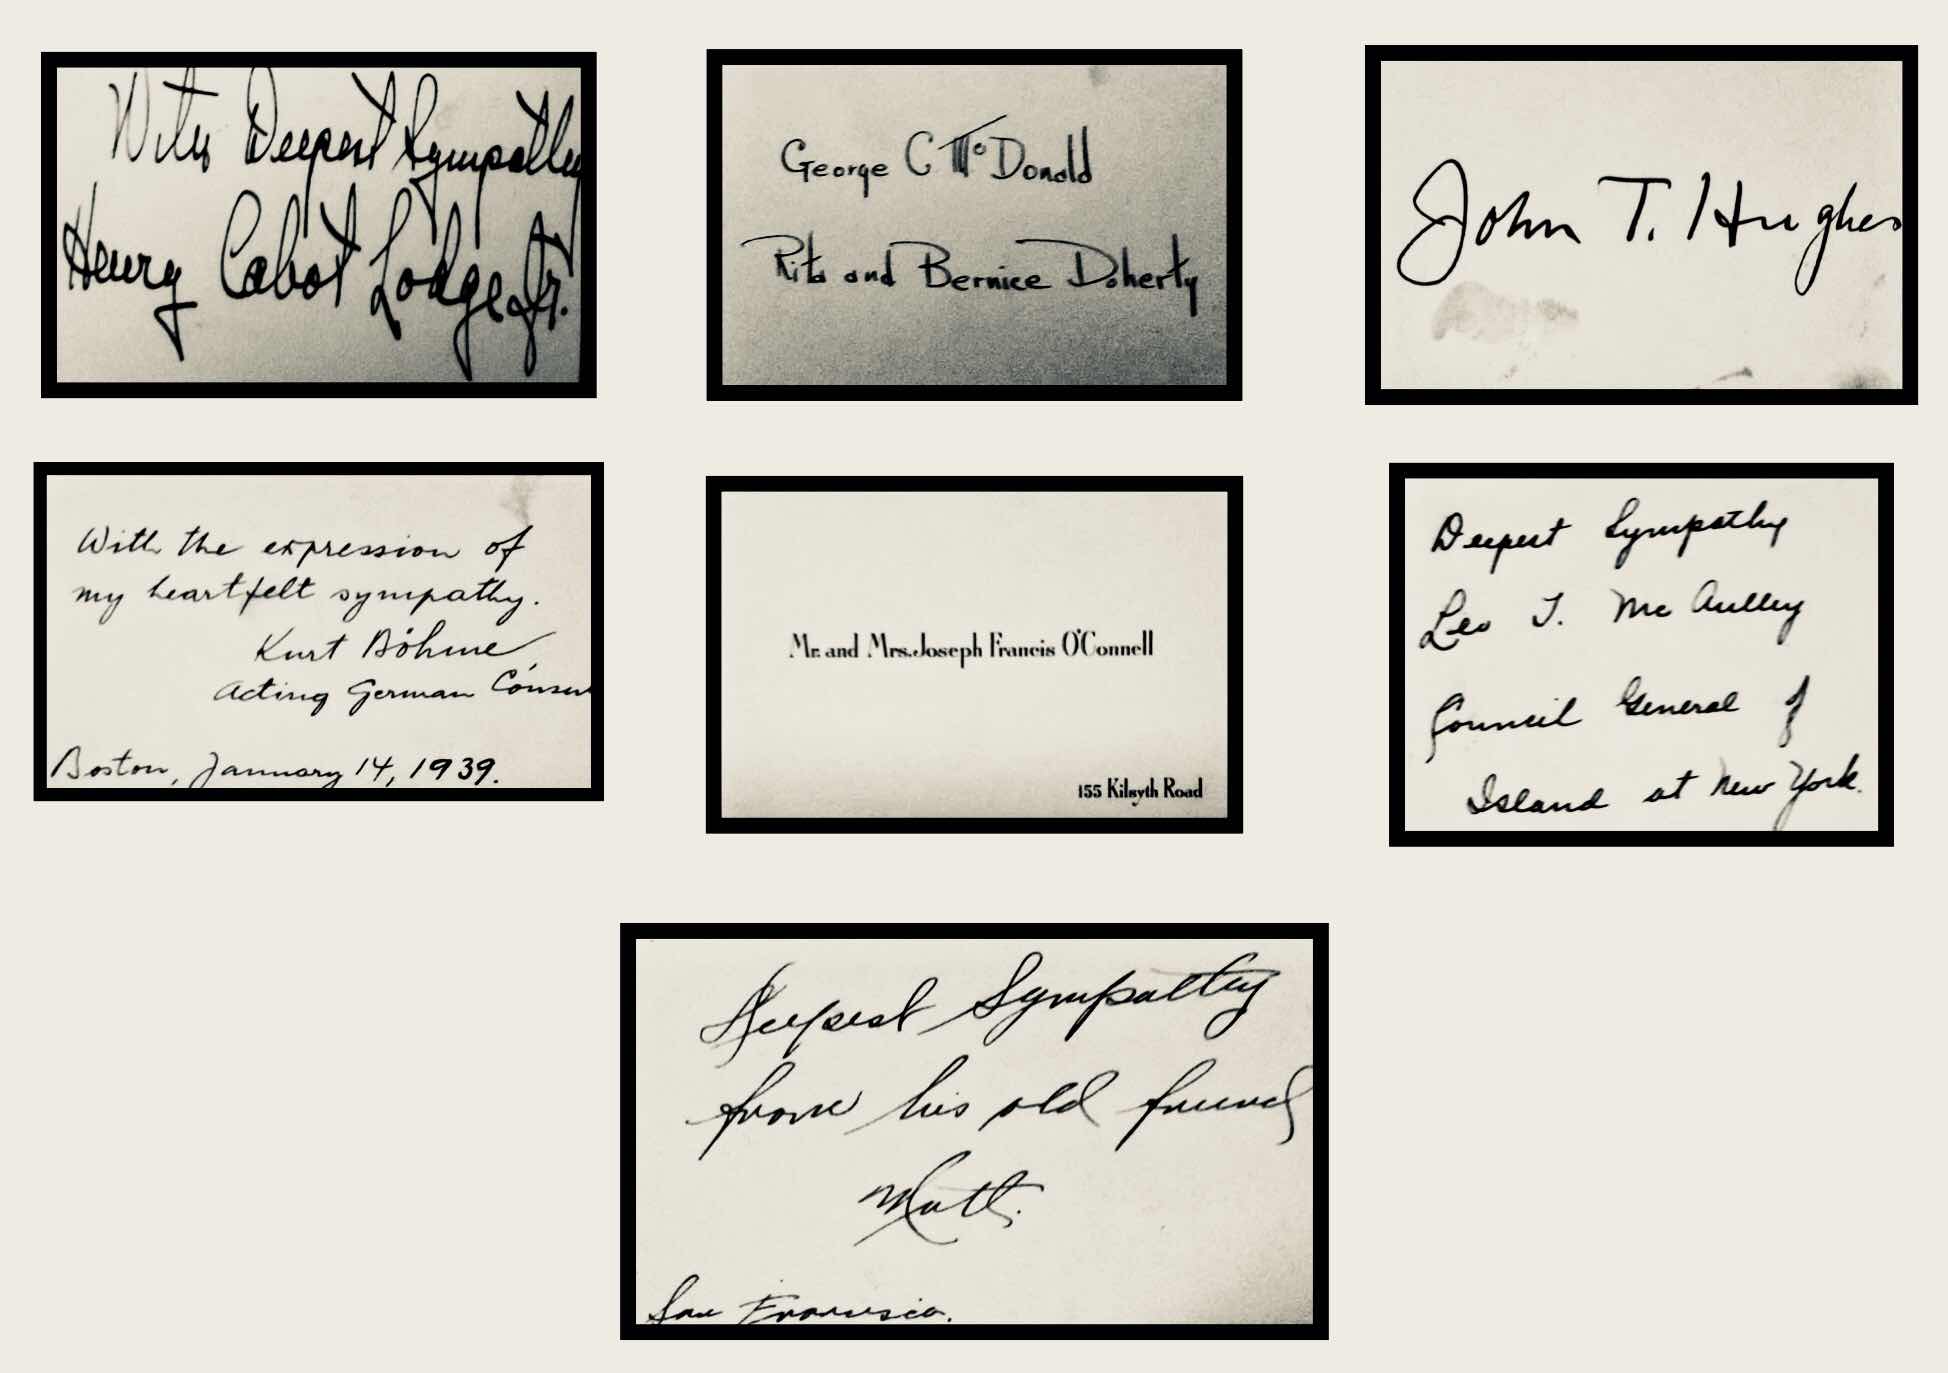 With Deepest Sympathy
Henry Cabot Lodge Jr.
George C McDonald
Rita and Bernice Doherty
John T. Hughes
With the expression of
my heartfelt sympathy.
Kurt Böhme
Acting German Consul
Boston, January 14, 1939.
Mr. and Mrs. Joseph Francis O'Connell
155 Kilsyth Road
Deepest Sympathy
Leo T. McAulley
Council General of
Island at New York.
Deepest Sympathy
from his old friend
Matt.
San Francisco.